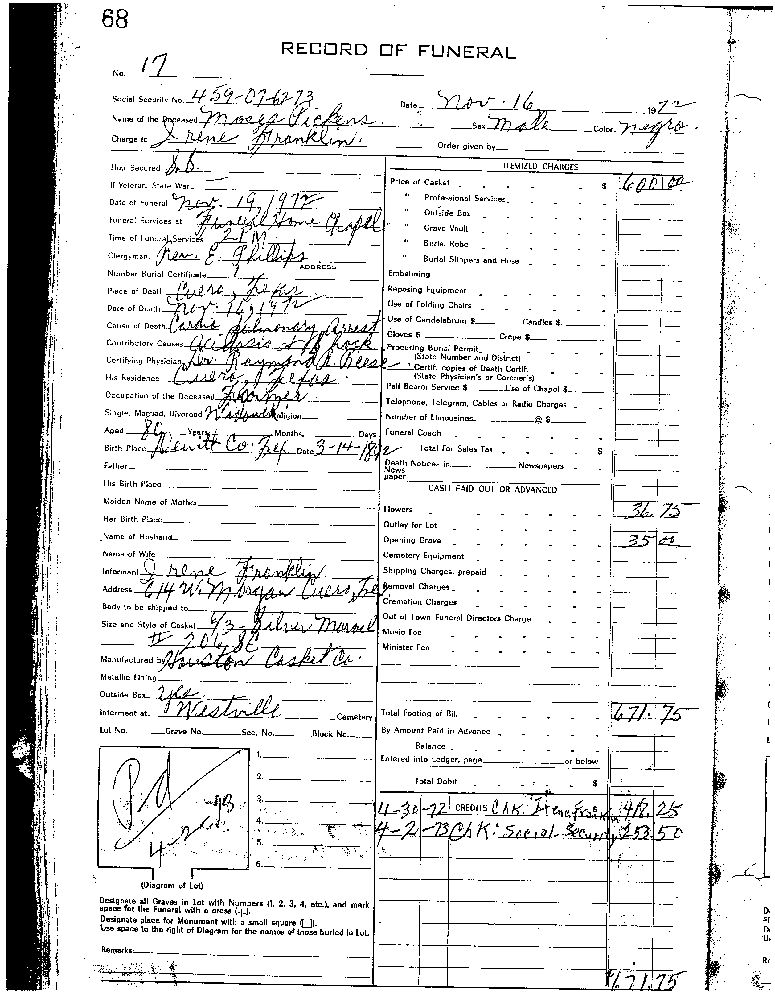 68
RECORD OF FUNERAL
No. 17
Social Security No. 459-07-6273
Date Nov. 16 1972
Name of the Deceased Moses Pickens. Sex Male Color Negro.
Charge to Irene Franklin. Order given by
How Secured S.S.
If Veteran, State War
Date of Funeral Nov. 19, 1972
Funeral Services at Funeral Home Chapel
Time of Funeral Services 2 P.M.
Clergyman Rev. E. Phillips
ADDRESS
Number Burial Certificate
Place of Death Cuero, Texas
Date of Death Nov. 16, 1972
Cause of Death Cardio pulmonary Arrest
Contributory Causes Acidosis & Shock
Certifying Physician Dr. Raymond R. Reese
His Residence Cuero, Texas.
Occupation of the Deceased Farmer
Single, Married, Divorced Widowed Religion
Aged 80 Years Months Days
Birth Place Dewitt Co. Tex Date 3-14-1892
Father
His Birth Place
Maiden Name of Mother
Her Birth Place
Name of Husband
Name of Wife
Informant Irene Franklin
Address 614 W. Morgan Cuero, Tex
Body to be shipped to
Size and Style of Casket 6/3 - Silver
# 206 SC
Manufactured by Houston Casket Co.
Metallic Lining
Outside Box Yes
Interment at Westville Cemetery
Lot No. Grave No. Sec. No. Block No.
1.
2.
3.
4.
5.
6.
Pd
4-2-73
(Diagram of Lot)
Designate all Graves in Lot with Numbers (1, 2, 3, 4, etc.), and mark
space for the Funeral with a cross (+).
Designate place for Monument with a small square (□).
Use space to the right of Diagram for the names of those buried in Lot.
Remarks:
ITEMIZED CHARGES
Price of Casket $ 600 00
" Professional Services
" Outside Box
" Grave Vault
" Burial Robe
" Burial Slippers and Hose
Embalming
Reposing Equipment
Use of Folding Chairs
Use of Candelabrum $ Candles $
Gloves $ Crepe $
Procuring Burial Permit
(State Number and District)
Certif. copies of Death Certif.
(State Physician's or Coroner's)
Pall Bearer Service $ Use of Chapel $
Telephone, Telegram, Cables or Radio Charges
Number of Limousines @ $
Funeral Coach
Total for Sales Tax $
Death Notices in Newspapers
News
paper
CASH PAID OUT OR ADVANCED
Flowers 36.75
Outlay for Lot
Opening Grave 35 00
Cemetery Equipment
Shipping Charges, prepaid
Removal Charges
Cremation Charges
Out of Town Funeral Directors Charge
Music Fee
Minister Fee
Total Footing of Bill 671.75
By Amount Paid in Advance
Balance
Entered into Ledger, page or below
Total Debit $
4-30-72 CREDITS Chk. Irene Franklin 418.25
4-2-73 Chk: Social Security 253.50
671.75